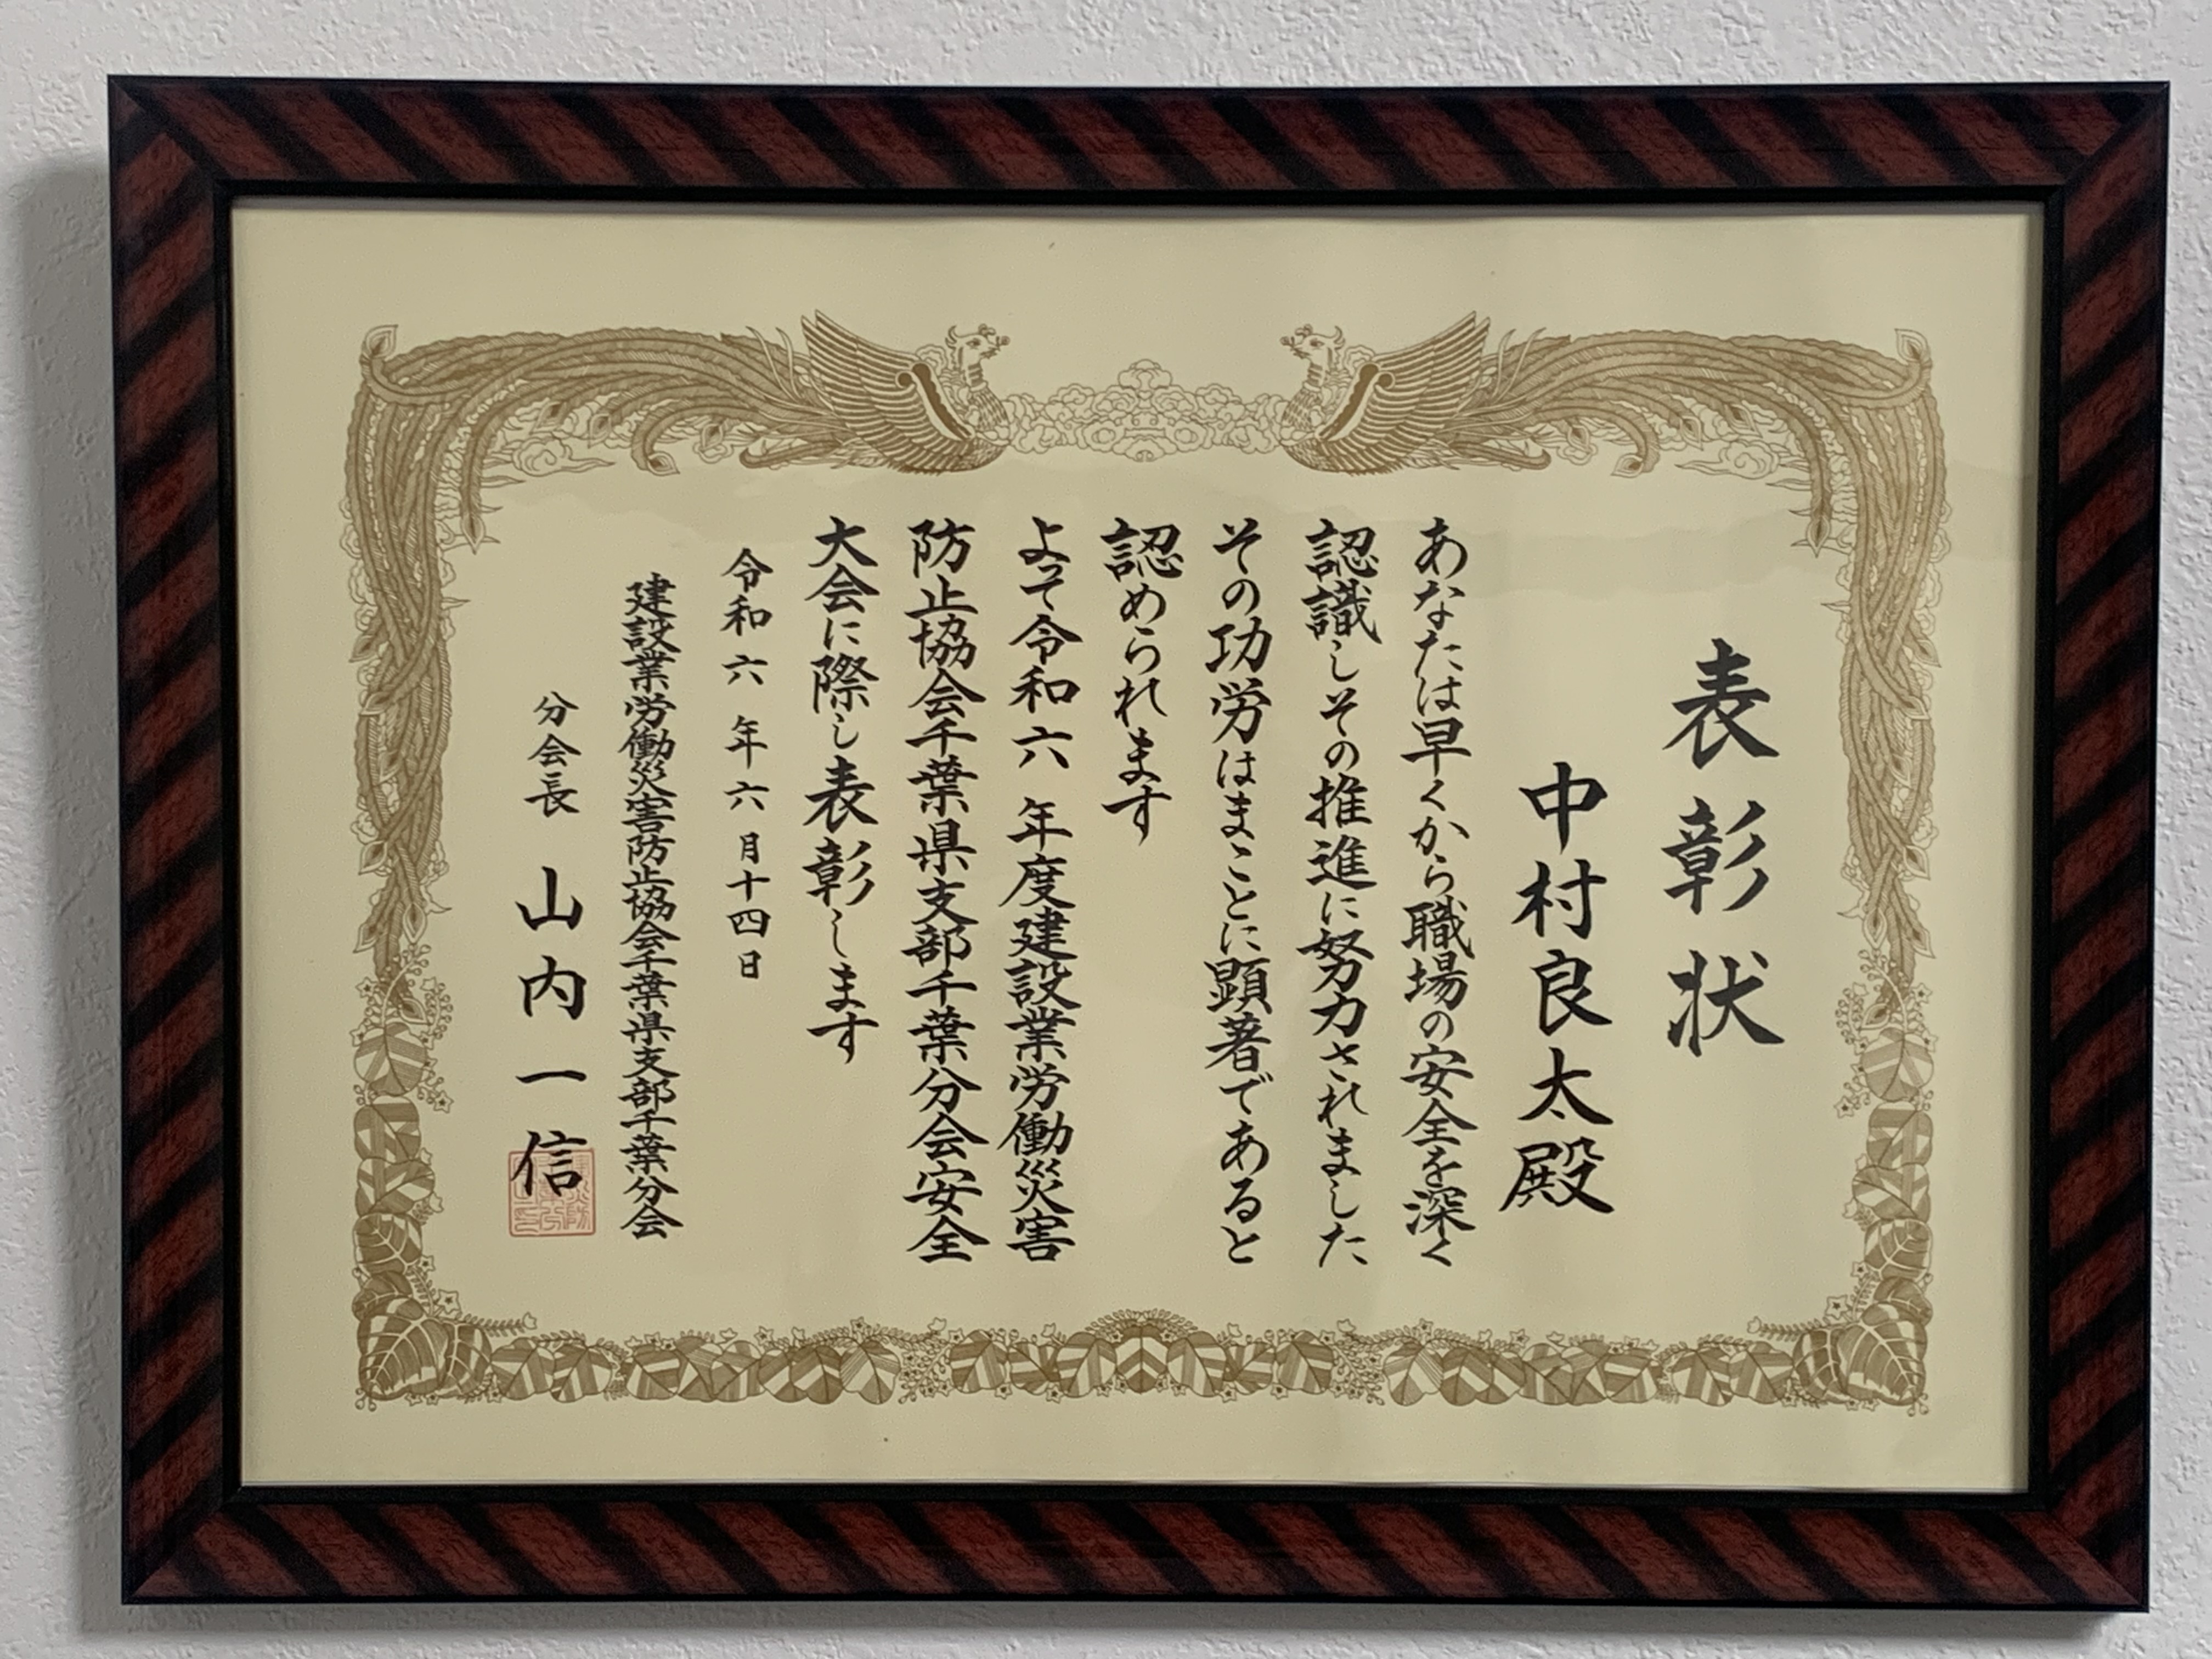 表彰状
中村良太殿
あなたは早くから職場の安全を深く
認識しその推進に努力されました
その功労はまことに顕著であると
認められます
よって令和六年度建設業労働災害
防止協会千葉県支部千葉分会安全
大会に際し表彰します
令和六年六月十四日
建設業労働災害防止協会千葉県支部千葉分会
分会長 山内一信